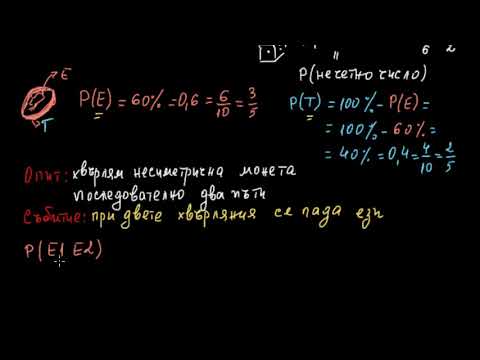 6 2
P(нечетно число)
E
T
P(E) = 60% = 0,6 = 6/10 = 3/5
P(T) = 100% - P(E) =
= 100% - 60% =
= 40% = 0,4 = 4/10 = 2/5
Опит: хвърлям несиметрична монета
последователно два пъти
Събитие: при двете хвърляния се пада ези
P(E1 E2)